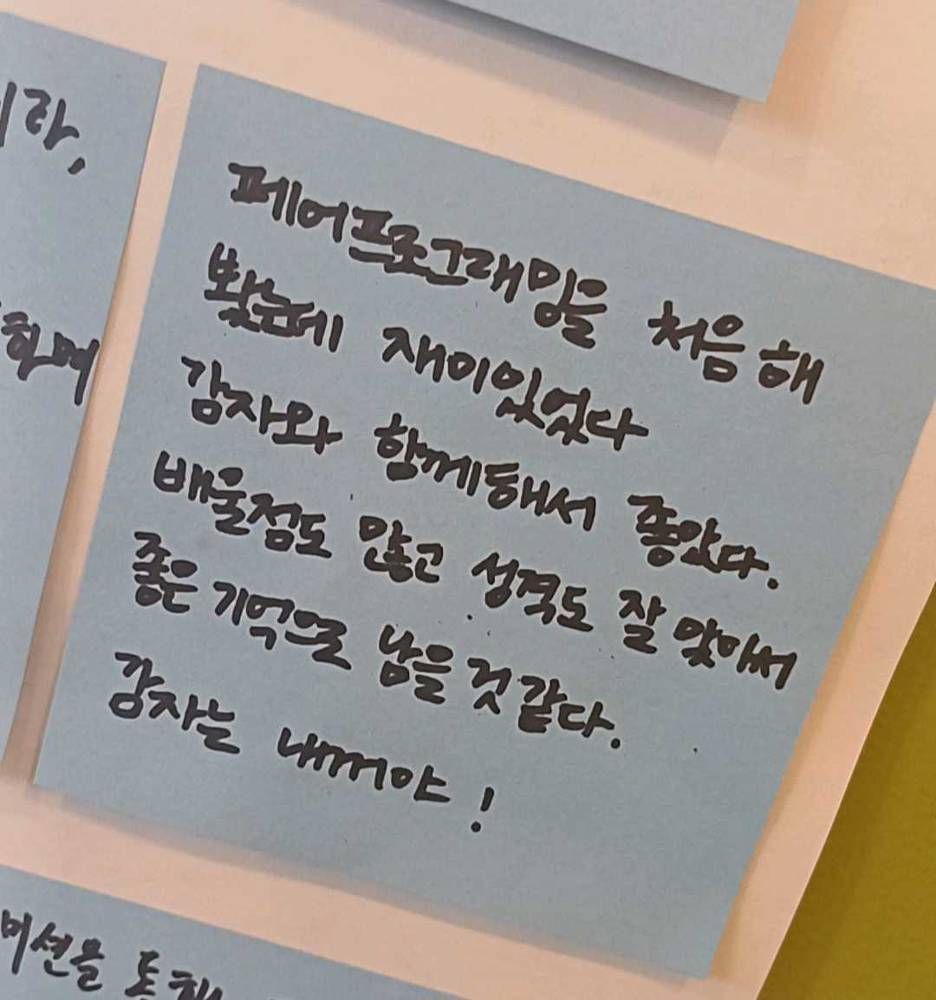 이라,
하며
페어프로그래밍을 처음 해
봤는데 재미있었다
감자와 함께해서 좋았다.
배울점도 많고 성격도 잘 맞아서
좋은 기억으로 남을 것 같다.
감자는 내꺼야!
미션을 통해